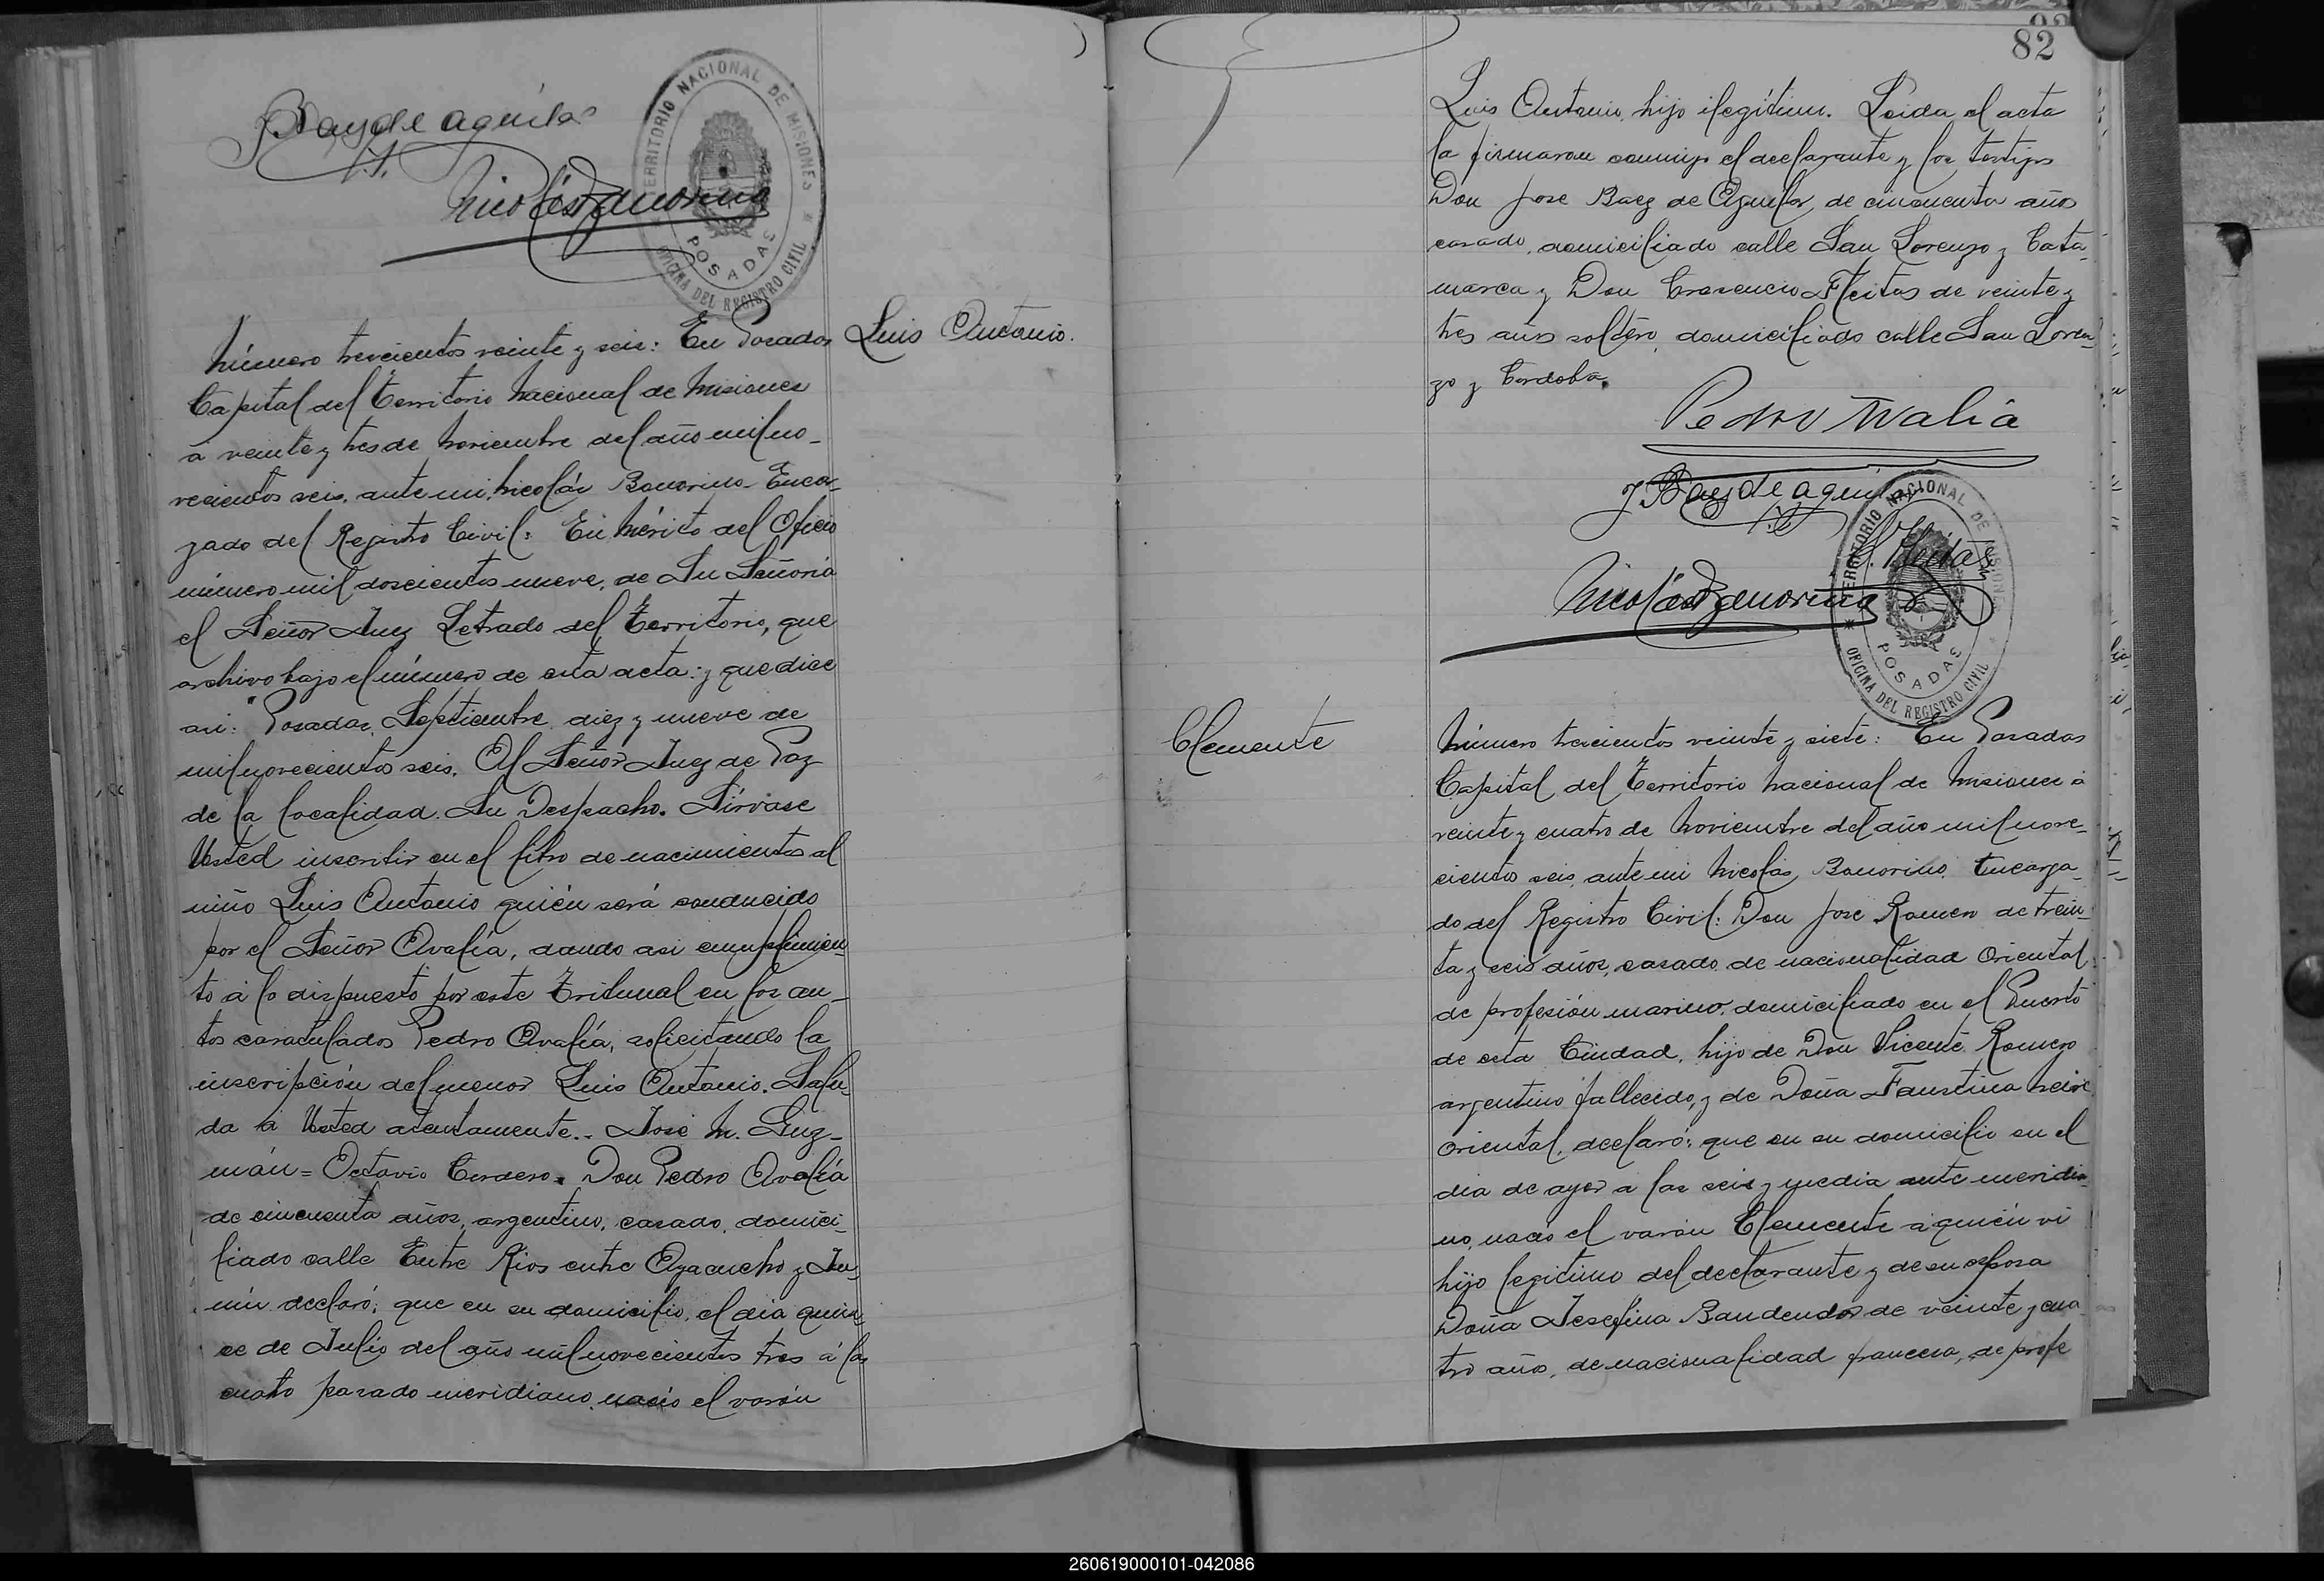 J Baez de Aguilar
Nicolás Bonorino
TERRITORIO NACIONAL DE MISIONES
POSADAS
OFICINA DEL REGISTRO CIVIL
Luis Antonio.
Número trescientos veinte y seis: En Posadas
Capital del Territorio Nacional de Misiones
a veinte y tres de Noviembre del año mil no-
vecientos seis, ante mi, Nicolás Bonorino Encar-
gado del Registro Civil: En mérito del Oficio
número mil doscientos nueve, de Su Señoria
el Señor Juez Letrado del Territorio, que
archivo bajo el número de esta acta: y que dice
asi: "Posadas, Septiembre diez y nueve de
mil novecientos seis. Al Señor Juez de Paz
de la localidad. Su Despacho. Sírvase
Usted inscribir en el libro de nacimientos al
niño Luis Antonio quién será conducido
por el Señor Ovalía, dando asi cumplimien-
to á lo dispuesto por este Tribunal en los au-
tos caratulados Pedro Ovalía, solicitando la
inscripción del menor Luis Antonio. Salu-
da á Usted atentamente.- José M. Guz-
mán = Octavio Cordero. Don Pedro Ovalía
de cincuenta años, argentino, casado, domici-
liado calle Entre Rios entre Ayacucho y Ju-
nin declaró; que en su domicilio, el dia quin-
ce de Julio del año mil novecientos tres á las
cuatro pasado meridiano, nació el varón
82
Luis Antonio, hijo ilegítimo. Leida el acta
la firmaron conmigo el declarante y los testigos
Don Jose Baez de Aguilar, de cincuenta años
casado, domiciliado calle San Lorenzo y Cata-
marca y Don Crescencio Fleitas de veinte y
tres años soltero, domiciliado calle San Loren-
zo y Cordoba.
Pedro Ovalia
J Baez de Aguilar
C. Fleitas
Nicolás Bonorino
TERRITORIO NACIONAL DE MISIONES
POSADAS
OFICINA DEL REGISTRO CIVIL
Clemente
Número trescientos veinte y siete: En Posadas
Capital del Territorio Nacional de Misiones á
veinte y cuatro de Noviembre del año mil nove-
cientos seis, ante mi Nicolás Bonorino Encarga-
do del Registro Civil: Don Jose Romero de trein-
ta y seis años, casado, de nacionalidad Oriental
de profesión marino, domiciliado en el Puerto
de esta Ciudad, hijo de Don Vicente Romero
argentino fallecido, y de Doña Faustina
Oriental, declaró: que en su domicilio en el
dia de ayer a las seis y media ante meridia-
no, nació el varón Clemente á quién vi
hijo legitimo del declarante y de su esposa
Doña Josefina de veinte y cua-
tro años, de nacionalidad francesa, de profe
260619000101-042086